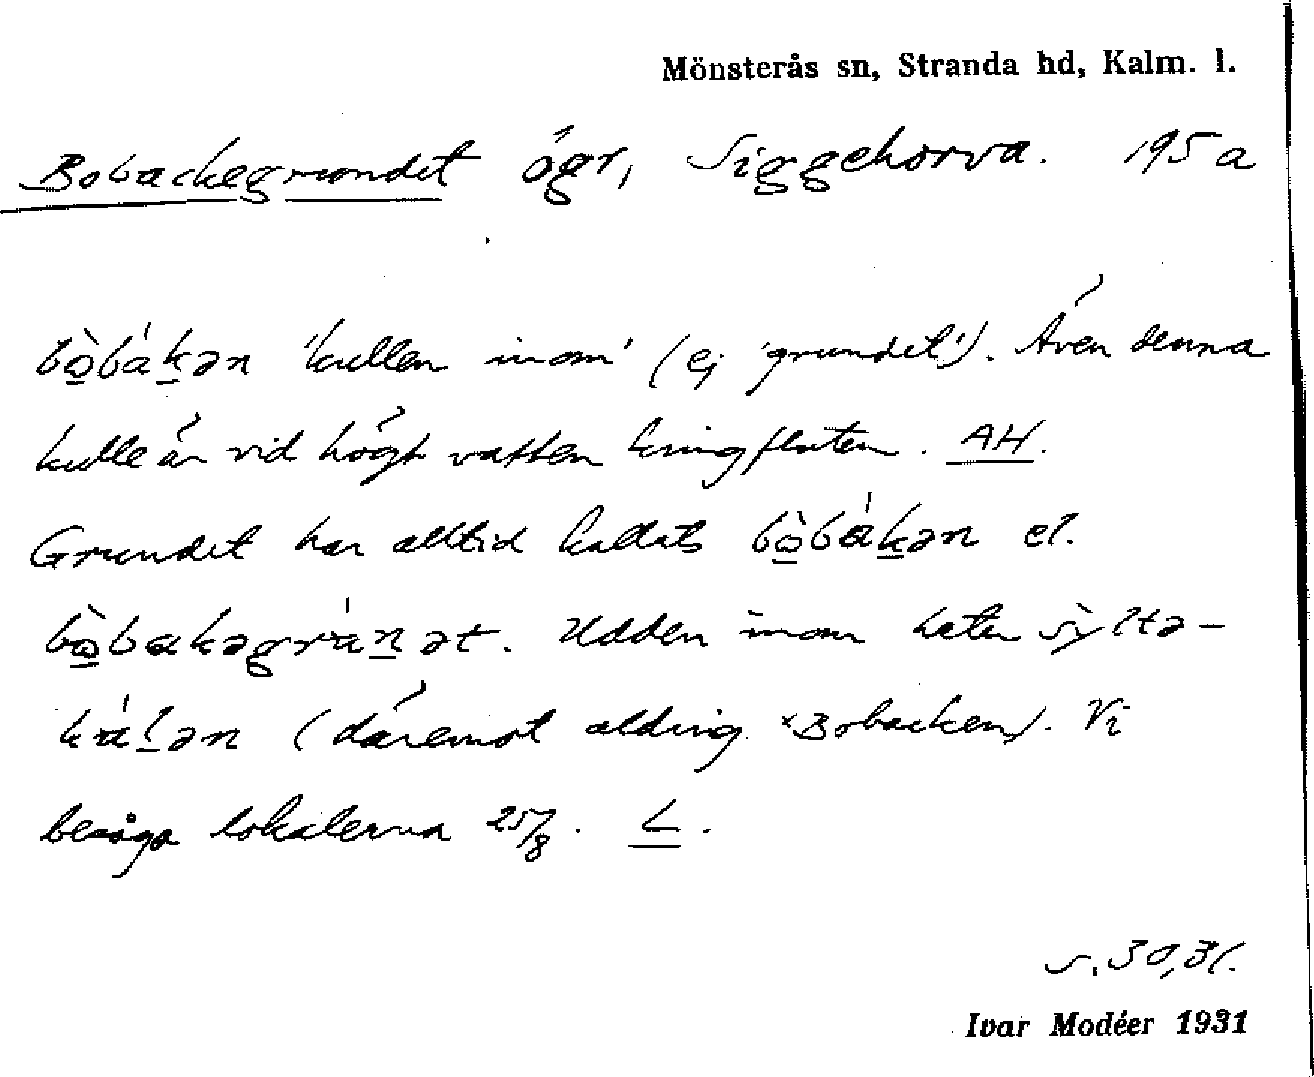 Mönsterås sn, Stranda hd, Kalm. l.
Bobackegrundet ögr, Siggehorva. 195 a
bò̱bák̲ən 'kullen inom' (ej 'grundet'). Även denna
kulle är vid högt vatten kringfluten. AH.
Grundet har alltid kallats bò̱bák̲ən el.
bò̱bakəgrán̲ət. Udden inom heter sỳltə-
kál̲ən (däremot aldrig ×Bobacken). Vi
besågo lokalerna 25/8. L.
s. 30, 31.
Ivar Modéer 1931